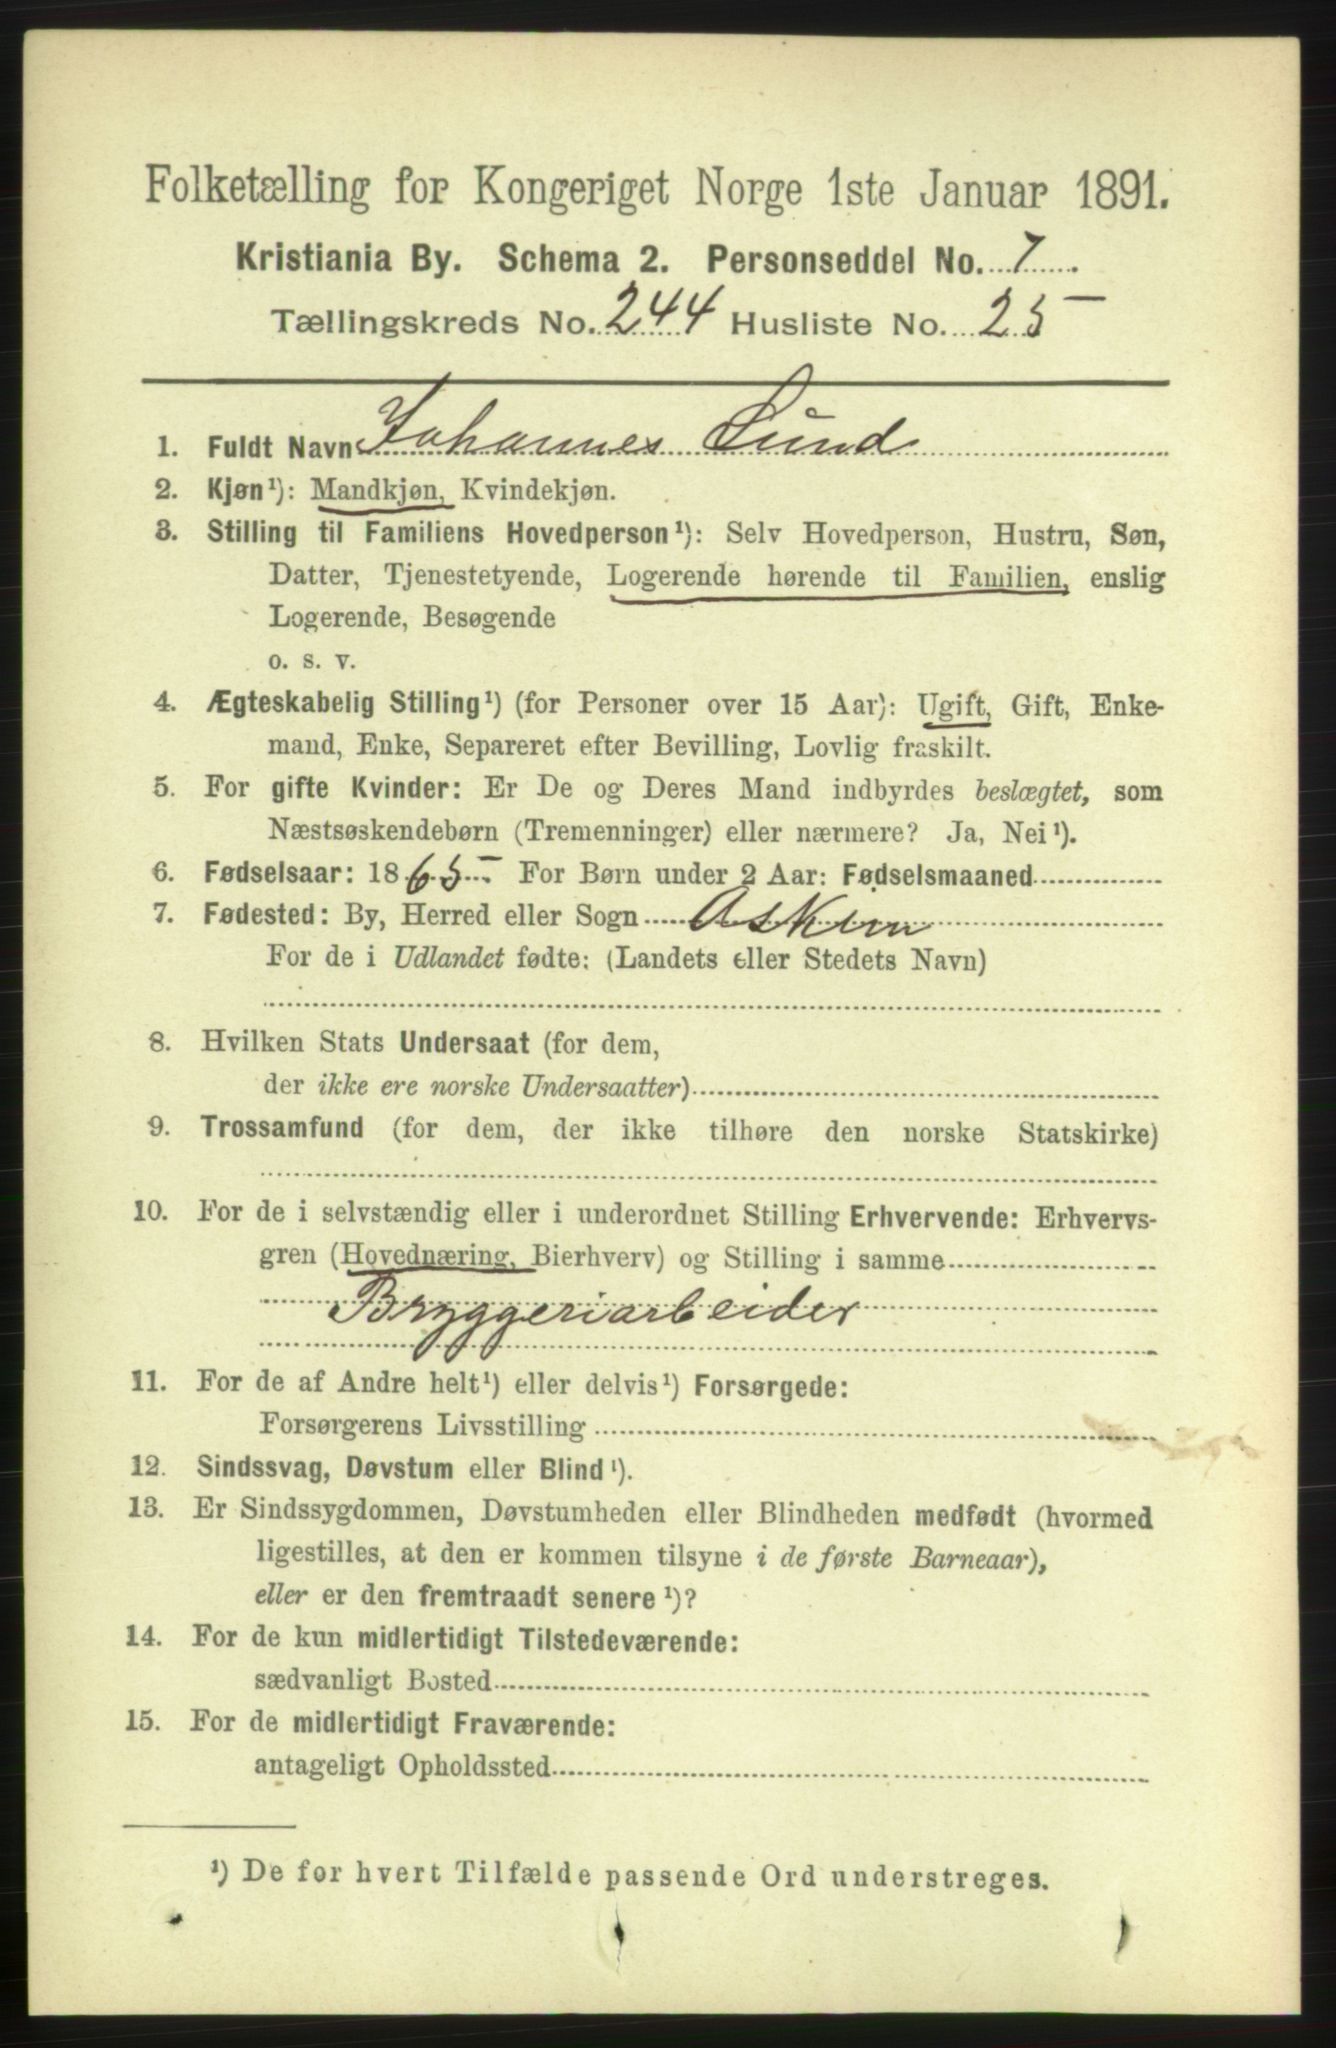 Folketælling for Kongeriget Norge 1ste Januar 1891.
Kristiania By. Schema 2. Personseddel No. 7.
Tællingskreds No. 244 Husliste No. 25
1. Fuldt Navn Johannes Lund
2. Kjøn¹): Mandkjøn, Kvindekjøn.
3. Stilling til Familiens Hovedperson¹): Selv Hovedperson, Hustru, Søn,
Datter, Tjenestetyende, Logerende hørende til Familien, enslig
Logerende, Besøgende
o. s. v.
4. Ægteskabelig Stilling¹) (for Personer over 15 Aar): Ugift, Gift, Enke-
mand, Enke, Separeret efter Bevilling, Lovlig fraskilt.
5. For gifte Kvinder: Er De og Deres Mand indbyrdes beslægtet, som
Næstsøskendebørn (Tremenninger) eller nærmere? Ja, Nei¹).
6. Fødselsaar: 1865. For Børn under 2 Aar: Fødselsmaaned
7. Fødested: By, Herred eller Sogn Askim
For de i Udlandet fødte: (Landets eller Stedets Navn)
8. Hvilken Stats Undersaat (for dem,
der ikke ere norske Undersaatter)
9. Trossamfund (for dem, der ikke tilhøre den norske Statskirke)
10. For de i selvstændig eller i underordnet Stilling Erhvervende: Erhvervs-
gren (Hovednæring, Bierhverv) og Stilling i samme
Bryggeriarbeider
11. For de af Andre helt¹) eller delvis¹) Forsørgede:
Forsørgerens Livsstilling
12. Sindssvag, Døvstum eller Blind¹).
13. Er Sindssygdommen, Døvstumheden eller Blindheden medfødt (hvormed
ligestilles, at den er kommen tilsyne i de første Barneaar),
eller er den fremtraadt senere¹)?
14. For de kun midlertidigt Tilstedeværende:
sædvanligt Bosted
15. For de midlertidigt Fraværende:
antageligt Opholdssted
¹) De for hvert Tilfælde passende Ord understreges.